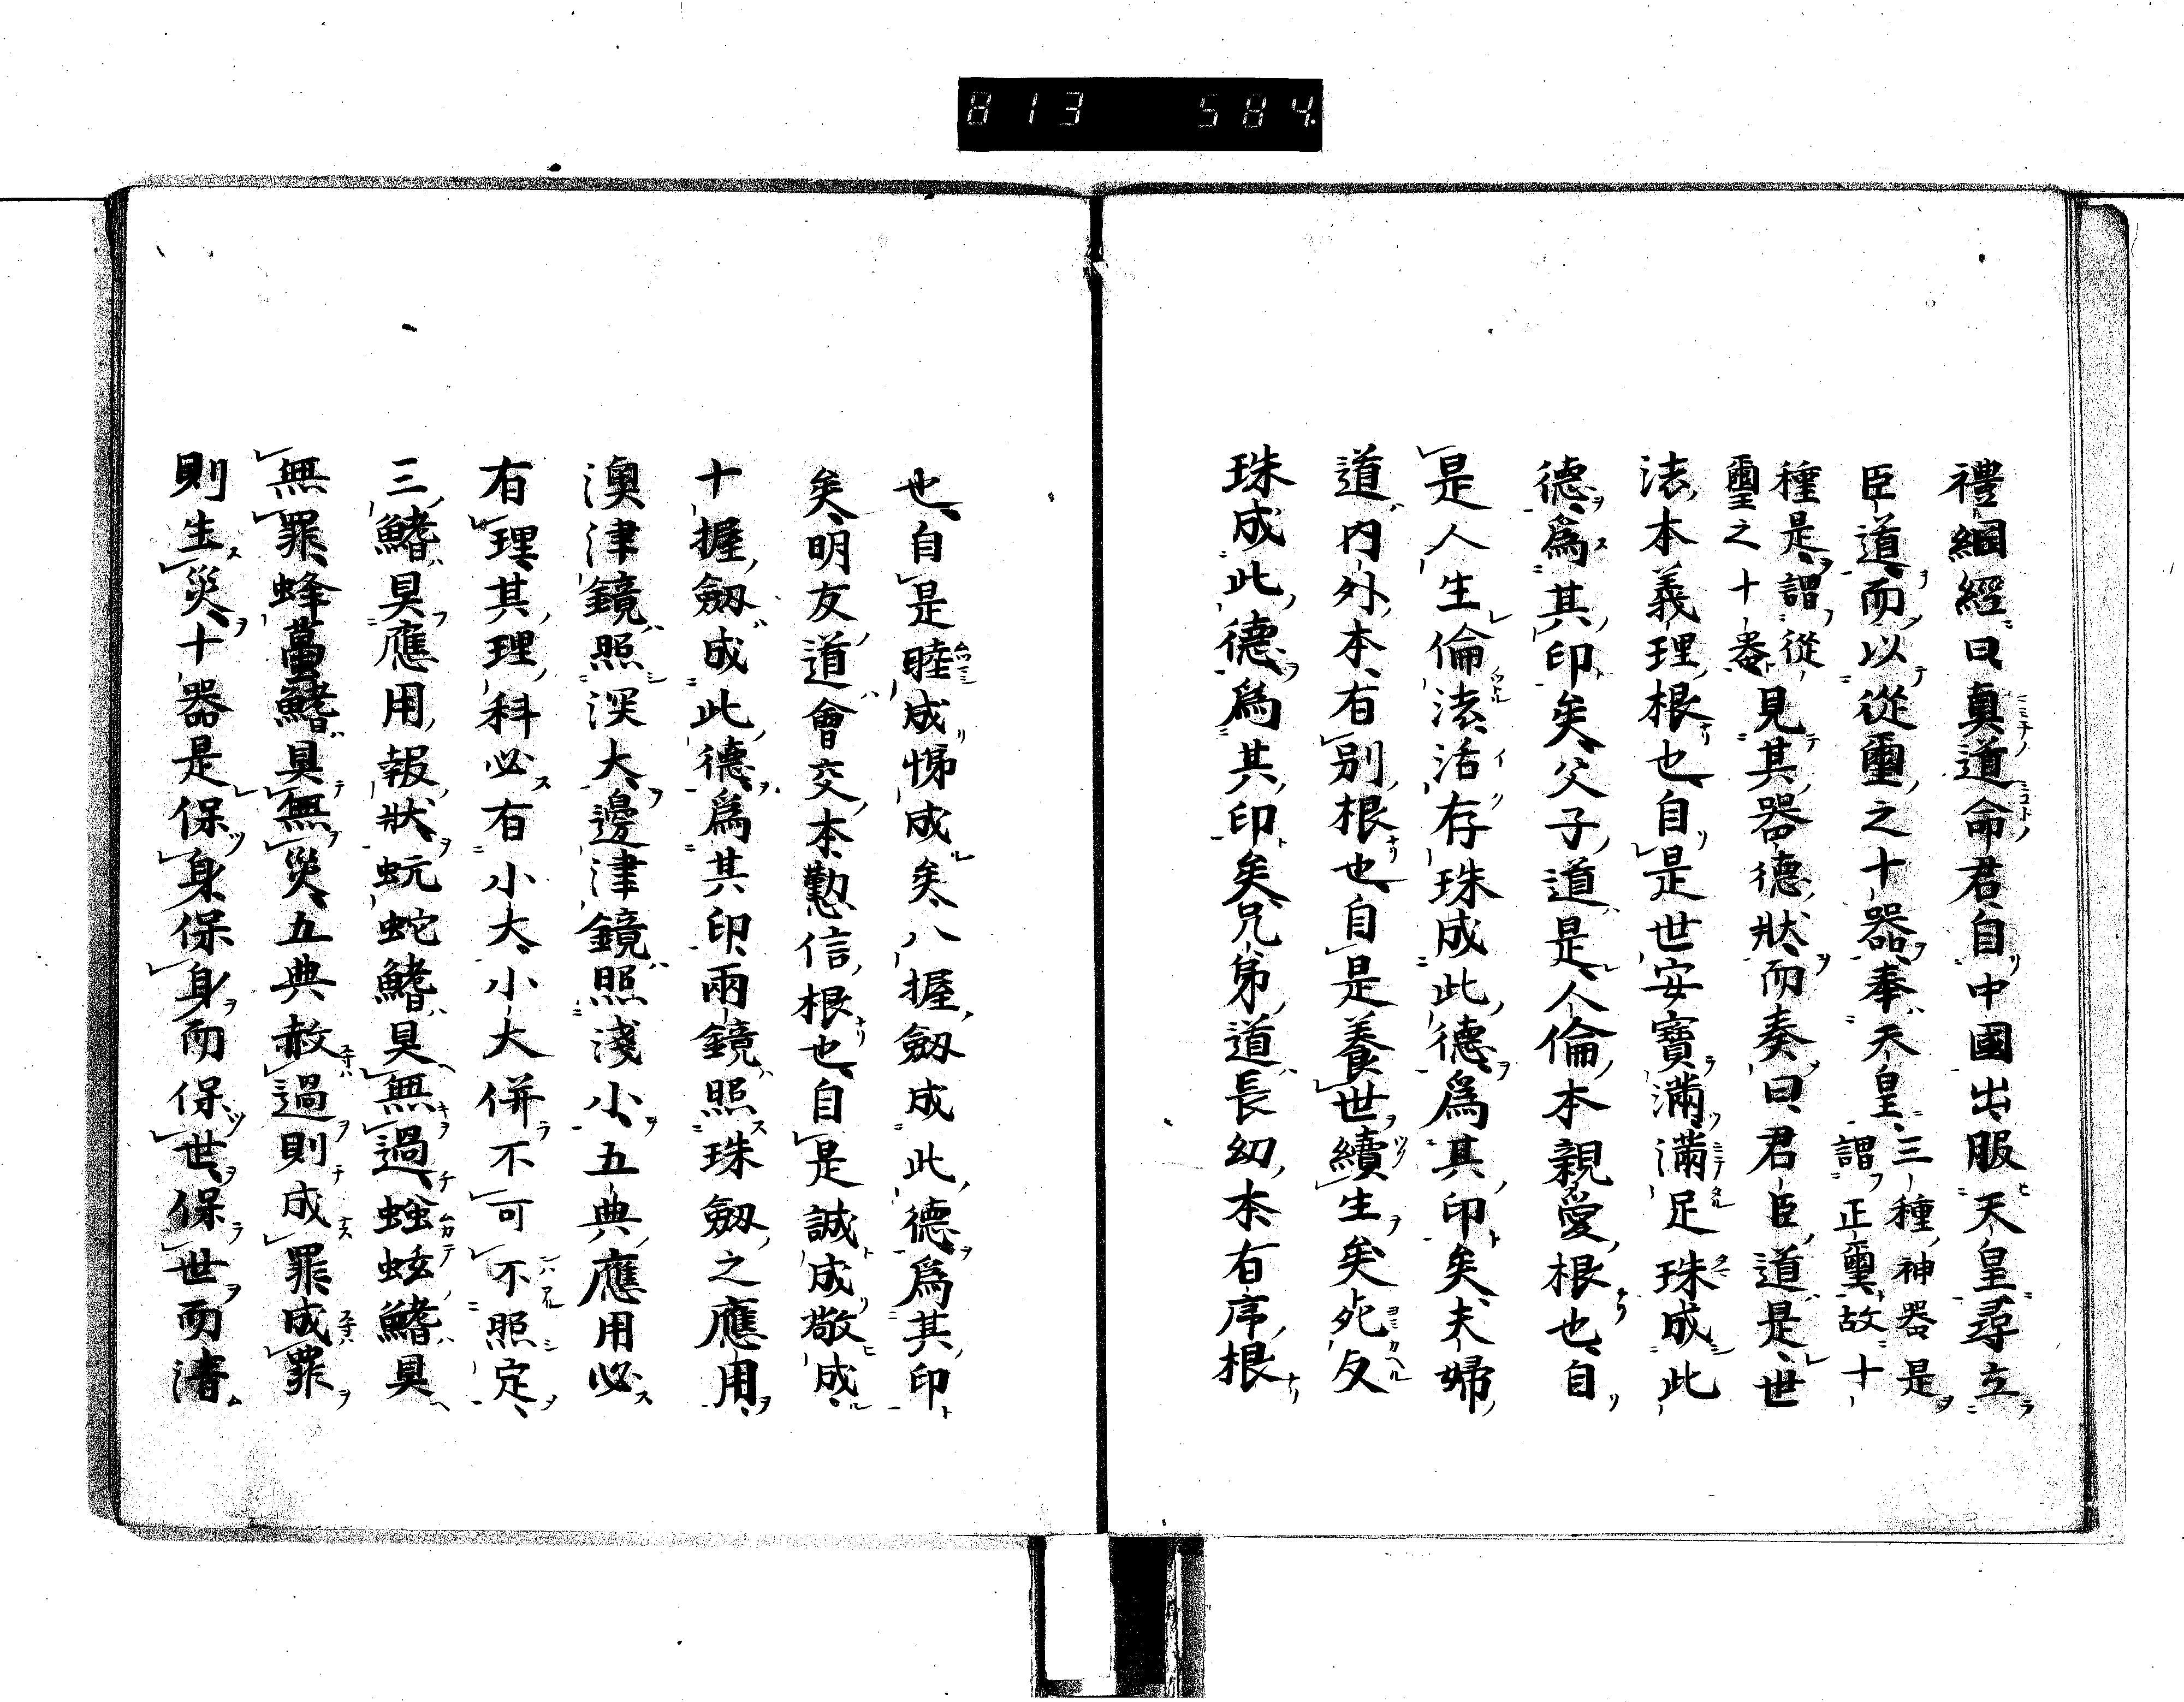 813 584
禮綱經曰眞道命君自中國出服天皇尋立
臣道而以從璽之十器奉天皇
三種神器是
謂正璽故十
種是謂從
璽之十器
見其器德狀而奏曰君臣道是世
法本義理根也自是世安寶滿滿足珠成此
德爲其印矣父子道是人倫本親愛根也自
是人生倫法活存珠成此德爲其印矣夫婦
道内外本有別根也自是養世續生矣死反
珠成此德爲其印矣兄弟道長幼本有序根
也自是睦成悌成矣八握劔成此德爲其印
矣明友道會交本懃信根也自是誠成敬成
十握劔成此德爲其印兩鏡照珠劔之應用
澳津鏡照深大邊津鏡照淺小五典應用必
有理其理科必有小大小大併不可不照定
三鰭具應用報狀蚖蛇鰭具無過蝗蚿鰭具
無罪蜂蠆鰭具無災五典赦過則成罪成罪
則生災十器是保身保身而保世保世而渚